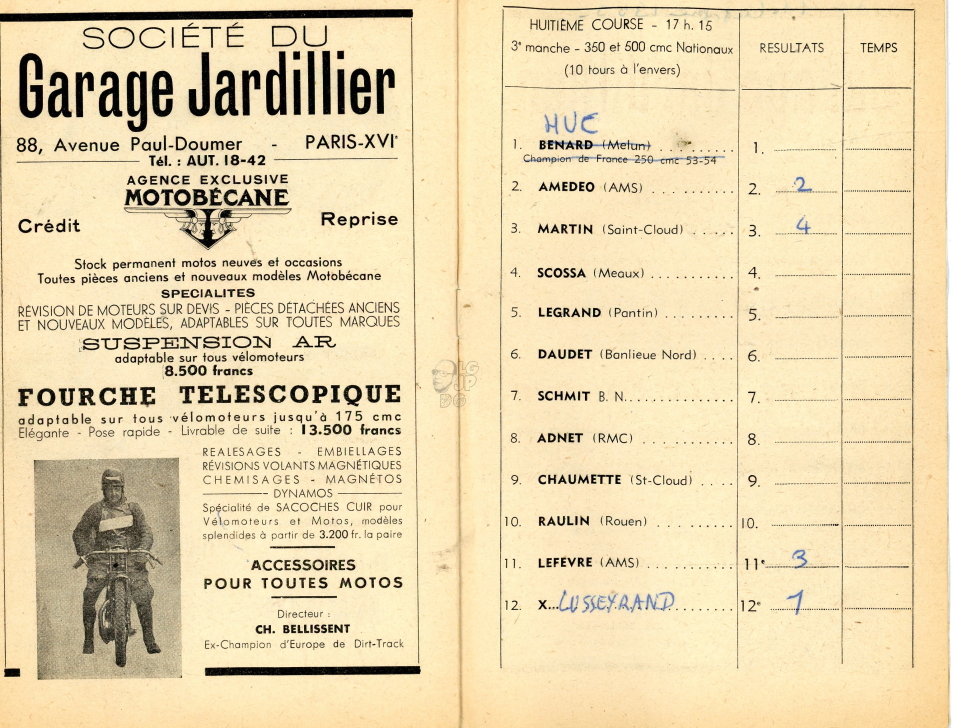 SOCIÉTÉ DU
Garage Jardillier
88, Avenue Paul-Doumer - PARIS-XVIe
Tél. : AUT. 18-42
AGENCE EXCLUSIVE
MOTOBÉCANE
Crédit
Reprise
Stock permanent motos neuves et occasions
Toutes pièces anciens et nouveaux modèles Motobécane
SPECIALITES
RÉVISION DE MOTEURS SUR DEVIS - PIÈCES DÉTACHÉES ANCIENS
ET NOUVEAUX MODELES, ADAPTABLES SUR TOUTES MARQUES
SUSPENSION AR
adaptable sur tous vélomoteurs
8.500 francs
FOURCHE TELESCOPIQUE
adaptable sur tous vélomoteurs jusqu'à 175 cmc
Elégante - Pose rapide - Livrable de suite : 13.500 francs
REALESAGES - EMBIELLAGES
RÉVISIONS VOLANTS MAGNÉTIQUES
CHEMISAGES - MAGNÉTOS
DYNAMOS
Spécialité de SACOCHES CUIR pour
Vélomoteurs et Motos, modèles
splendides à partir de 3.200 fr. la paire
ACCESSOIRES
POUR TOUTES MOTOS
Directeur :
CH. BELLISSENT
Ex-Champion d'Europe de Dirt-Track
HUITIÈME COURSE - 17 h. 15
3e manche - 350 et 500 cmc Nationaux
(10 tours à l'envers)
RESULTATS
TEMPS
HUC
1. BENARD (Melun) . . . . . . . . . 1.
Champion de France 250 cmc 53-54
2. AMEDEO (AMS) . . . . . . . . . . 2. 2
3. MARTIN (Saint-Cloud) . . . . . 3. 4
4. SCOSSA (Meaux) . . . . . . . . . . 4.
5. LEGRAND (Pantin) . . . . . . . . . 5.
6. DAUDET (Banlieue Nord) . . . . 6.
7. SCHMIT B. N. . . . . . . . . . . . . 7.
8. ADNET (RMC) . . . . . . . . . . . 8.
9. CHAUMETTE (St-Cloud) . . . . 9.
10. RAULIN (Rouen) . . . . . . . . . 10.
11. LEFEVRE (AMS) . . . . . . . . . . 11e 3
12. X... LUSSEYRAND . . . . . . . . 12e 1